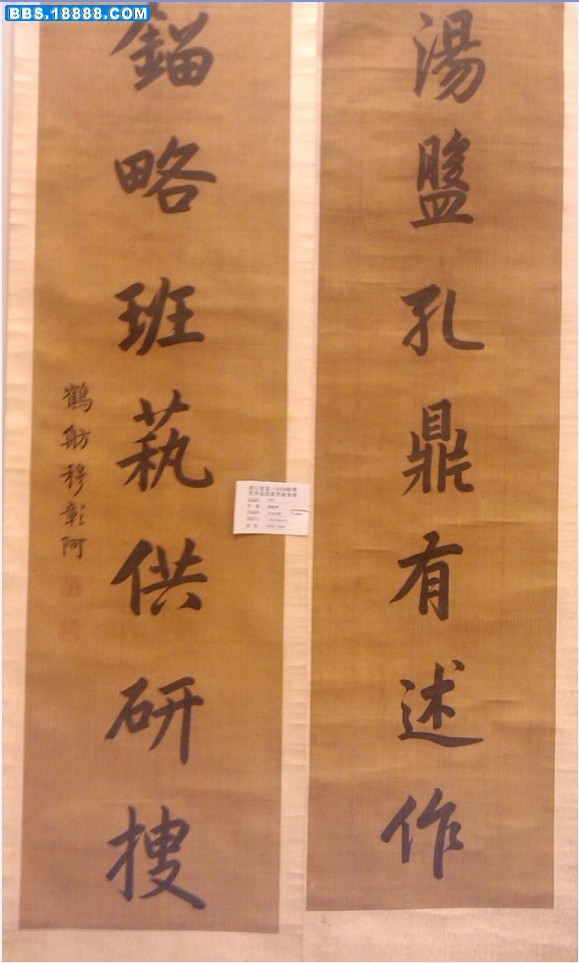 BBS.18888.COM
湯盤孔鼎有述作
鎦略班蓺供研搜
鶴舫穆彰阿